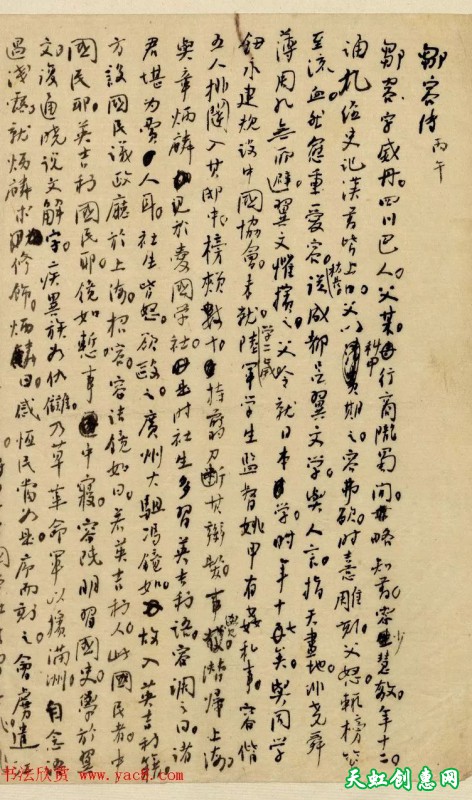 鄒容傳 丙午
鄒容字威丹。四川巴人。父某。行商隴蜀間。略知書。容少慧敏。年十二。
誦九經史記漢書皆上口。父以科甲期之。容弗欲。時喜雕刻。父怒。輒榜笞
至流血。然愈重愛容。稍長從成都呂翼文學。與人言。指天畫地。非堯舜
薄周孔。無所避。翼文懼。擯之。父令就日本學。時年十七矣。與同學
鈕永建規設中國協會。未就。學二歲。陸軍學生監督姚甲有姦私事。容偕
五人排闥入其邸中。榜頰數十。持剪刀斷其辮髮。事覺。潛歸上海。
與章炳麟見於愛國學社。是時社生多習英吉利語。容調之曰。諸
君堪為賈人耳。社生皆怒。欲毆之。廣州大駔馮鏡如。故入英吉利籍。
方設國民議政廳於上海。招容。容詰鏡如曰。若英吉利人。此國民者。中
國民邪。英吉利國民邪。鏡如慙。事中寢。容既明習國史。學於翼
文。復通曉說文解字。疾異族如仇讎。乃草革命軍以擯滿洲。自念語
過淺露。就炳麟求修飾。炳麟曰。感恆民當如是。序而刻之。會虜遣
书法欣赏 www.yac8.com
天虹创意网